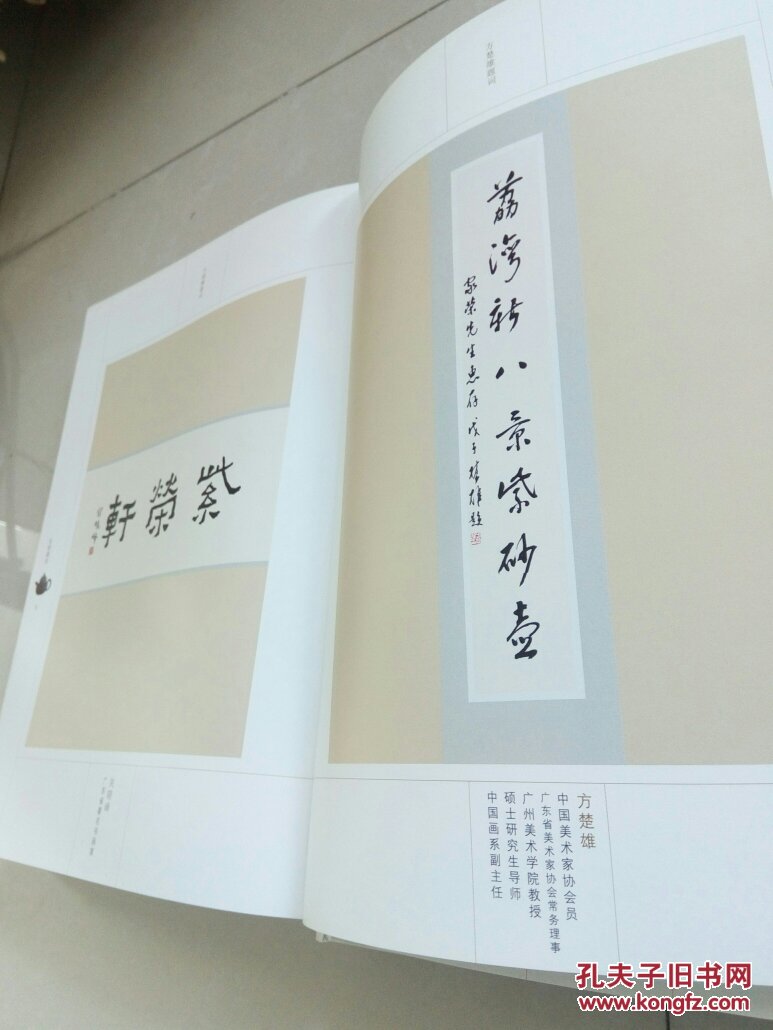 方楚雄题词
荔湾新八景紫砂壶
家荣先生惠存 戊子楚雄题
方楚雄
中国美术家协会会员
广东省美术家协会常务理事
广州美术学院教授
硕士研究生导师
中国画系副主任
紫榮軒
孔夫子旧书网
www.kongfz.com